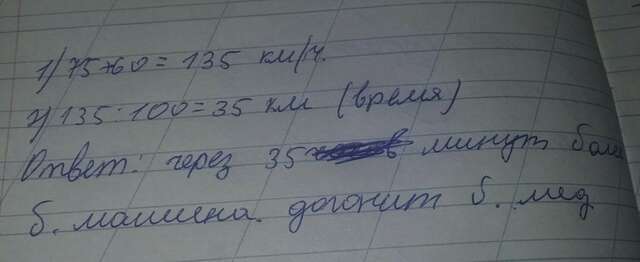 1) 75+60 = 135 км/ч.
2) 135 : 100 = 35 км (время)
Ответ: через 35 минут более
б. машина. догонит б. мед